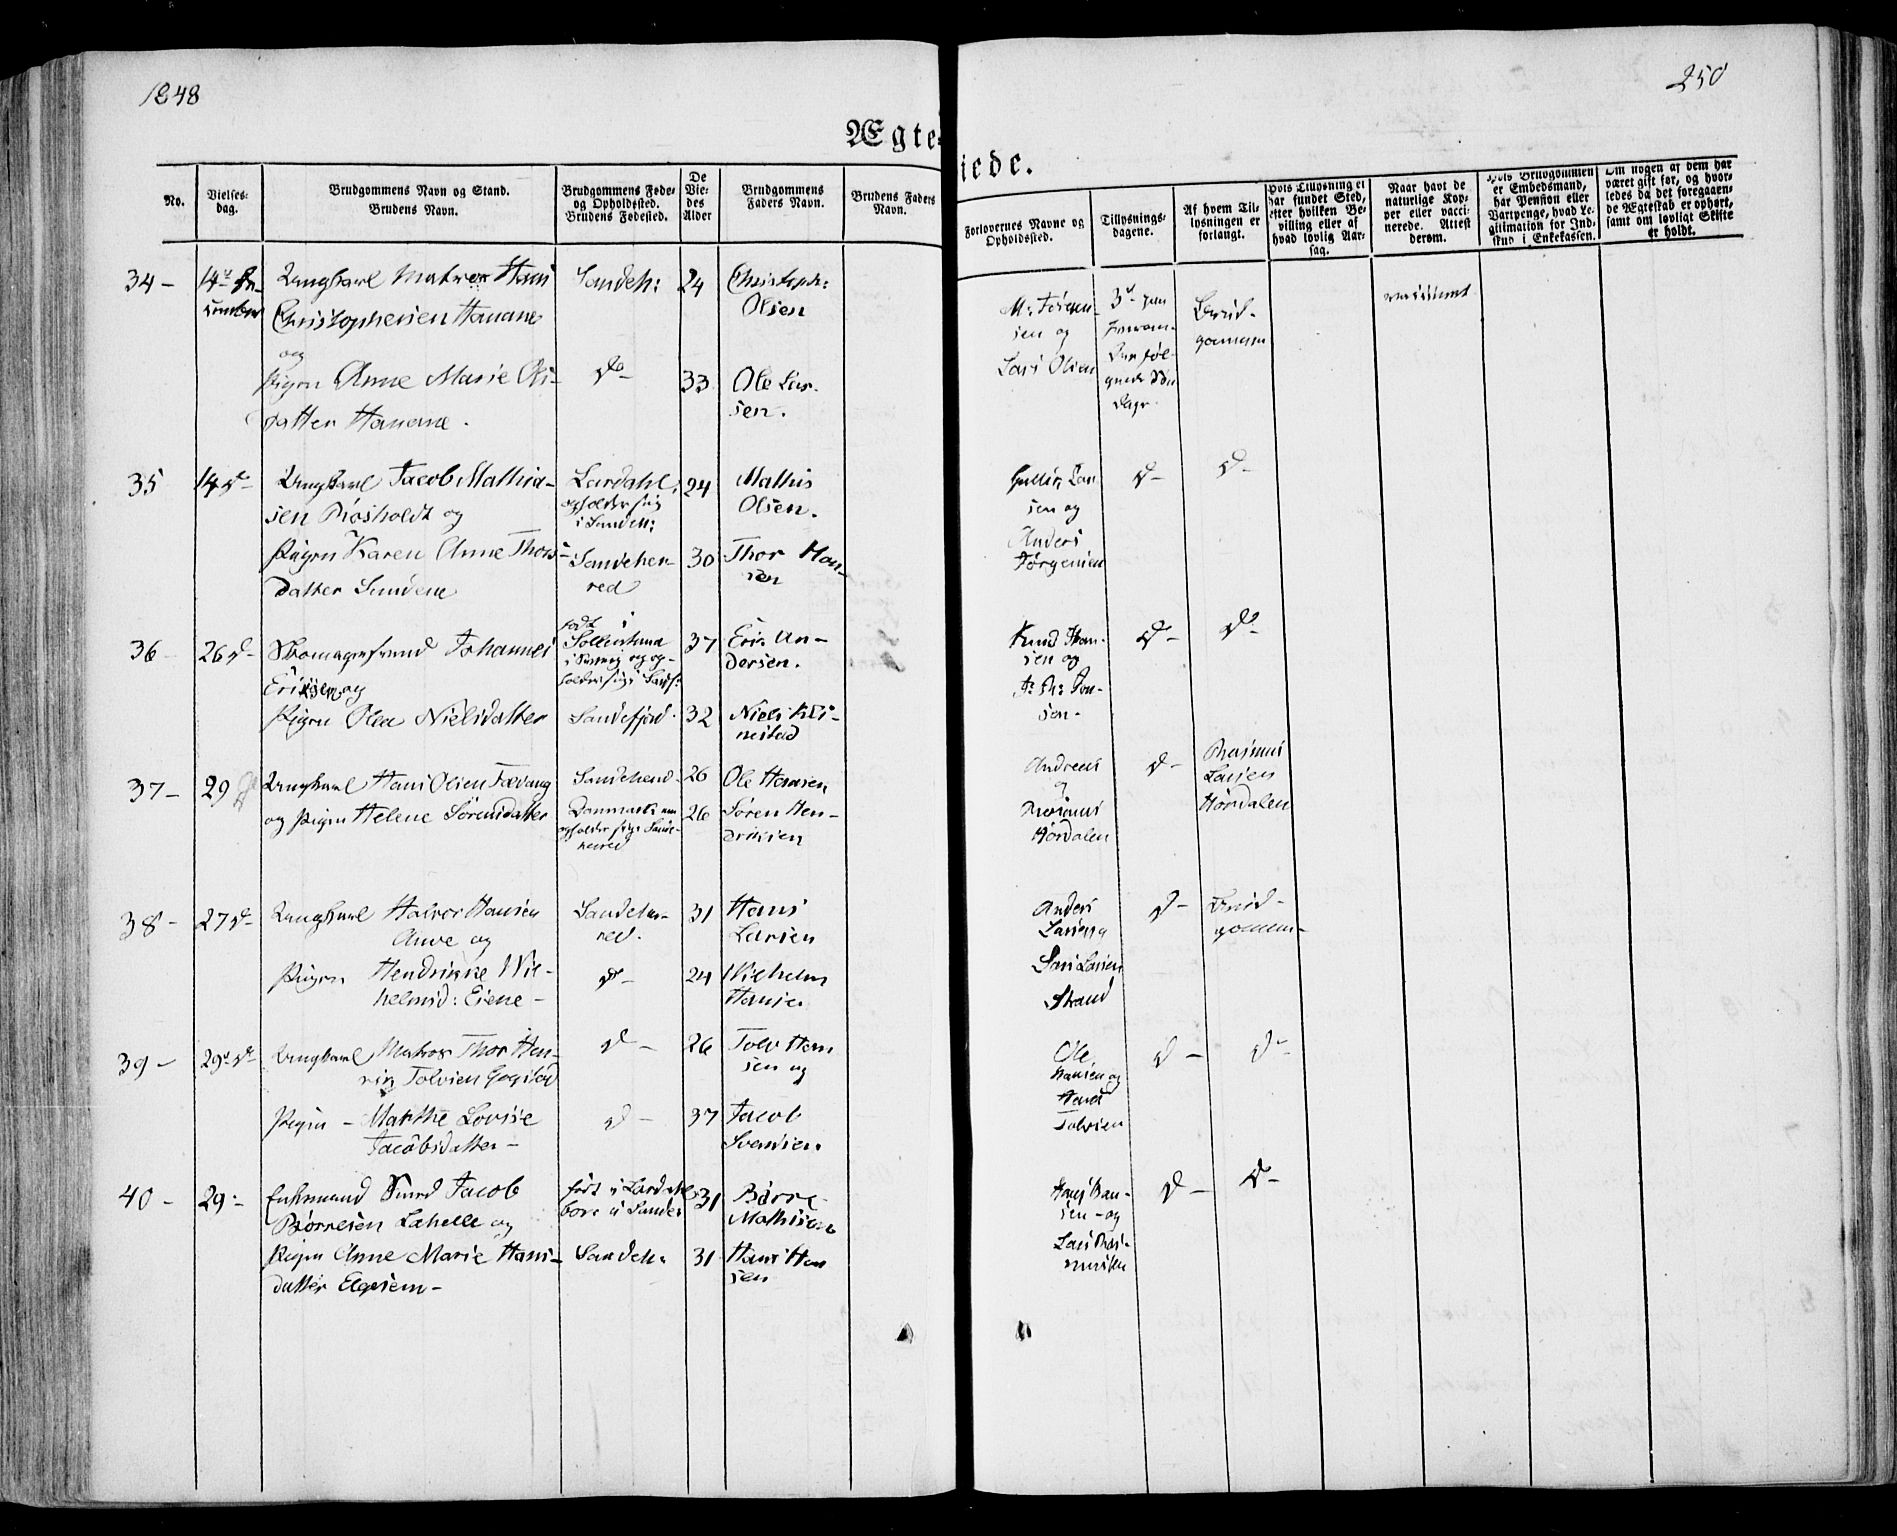 1848
250
Ægteviede.
No.
Vielses-
dag.
Brudgommens Navn og Stand.
Brudens Navn.
Brudgommens Føde-
og Opholdsted.
Brudens Fødested.
De
Vie-
des
Alder
Brudgommens
Faders Navn.
Brudens Faders
Navn.
Forlovernes Navne og
Opholdssted.
Tillysnings-
dagene.
Af hvem Til-
lysningen er
forlangt.
Hvis Tillysning ei
har fundet Sted,
efter hvilken Be-
villing eller af
hvad lovlig Aar-
sag.
Naar havt de
naturlige Kop-
per eller vacci-
nerede. Attest
derom.
Hvis Brudgommen
er Embedsmand,
har Pension eller
Vartpenge, hvad Le-
gitimation for Ind-
skud i Enkekassen.
Om nogen af dem har
været gift før, og hvor-
ledes da det foregaaen-
de Ægteskab er ophørt,
samt om lovligt Skifte
er holdt.
34 -
Ungkarl Matros Hans
Christophersen Hauane
og
Pigen Anne Marie Ols-
datter Hauane.
Sandeh:
do -
24
33
Christoph:
Olsen
Ole Lar-
sen.
Lars Olsen
Brud-
gommen
35
14 d -
Ungkarl Jacob Mathia-
sen Røsholdt og
Pigen Karen Anne Thors-
datter Sundene
Lardahl,
opholder sig
i Sandeh:
Sandeher-
red
24
30
Mathis
Olsen.
Thor Han-
sen
sen og
Anders
Jørgensen
d -
d -
36
26 d -
Skomagersvend Johannes
Eriksen og
Pigen Olea Nielsdatter
født i
i Sverrig og op-
holder sig i Sandf:
Sandefjord.
37
32
Eric An-
dersen.
Niels Kli-
nestad
Knud Han-
sen og
sen -
d -
do -
37 -
29
Ungkarl Hans Olsen Fævang
og Pigen Helene Sørensdatter
Sandeherred
Danmark men
opholder sig i Sande-
herred
26
26
Ole Hansen
Søren Hen-
driksen
Andreas
og
Rasmus
Hørdalen
d -
Rasmus
Larsen
Hørdalen
38 -
27 d -
Ungkarl Halvor Hansen
og
Pigen Hendrikke Wil-
helmsd: Eiene -
Sandeher-
red.
do -
31
24
Hans
Larsen
Wilhelm
Hansen
Anders
Larsen og
Lars Larsen
Strand
d -
Brud-
gommen -
39 -
Ungkarl Matros Thor Hen-
rik Tolvsen Gogstad
Pigen - Marthe Lovise
Jacobsdatter -
d -
d -
26
37
Tolv Han
sen og
Jacob
Svendsen.
Ole
Hansen og
Hans
Tolvsen
d -
d -
40 -
29 -
Enkemand Smed Jacob
Børresen Lahelle og
Pigen Anne Marie Hans-
datter
født i Lardahl
Sandeh:
31
31
Børre
Mathisen
Hans Han
sen
Hans Han-
sen - og
Lars Ras-
mussen
d -
d -